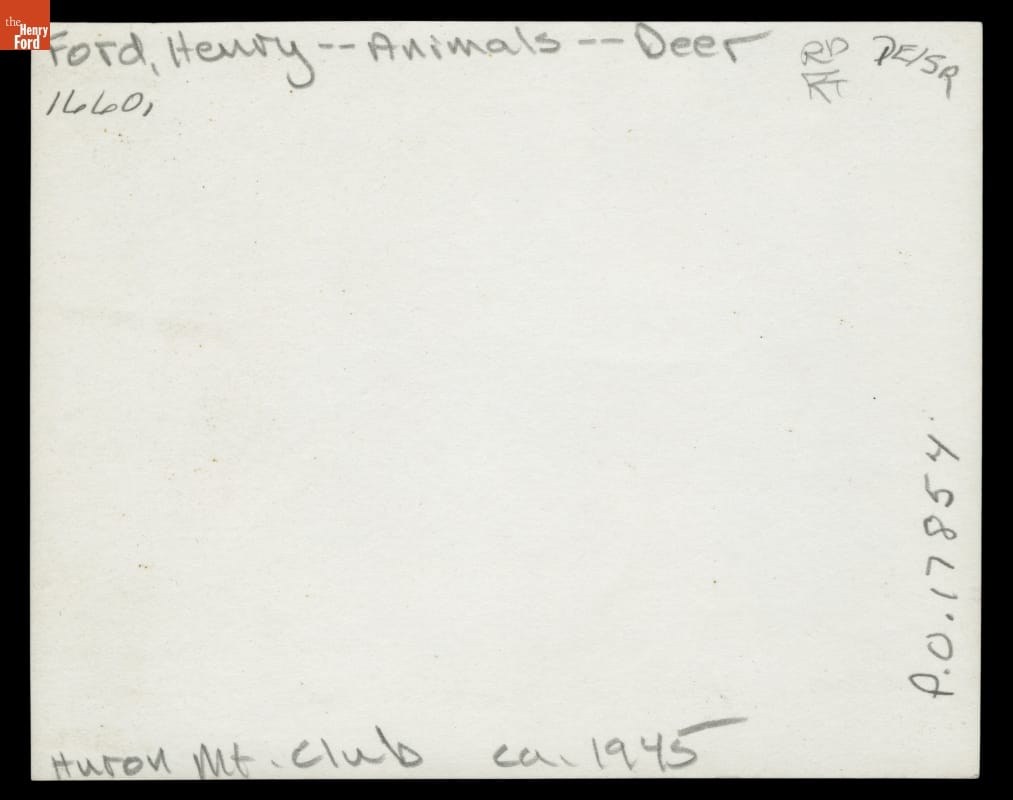 the
Henry
Ford
Ford, Henry -- Animals -- Deer
1660,
P.O. 17854
Huron Mt. Club ca. 1945